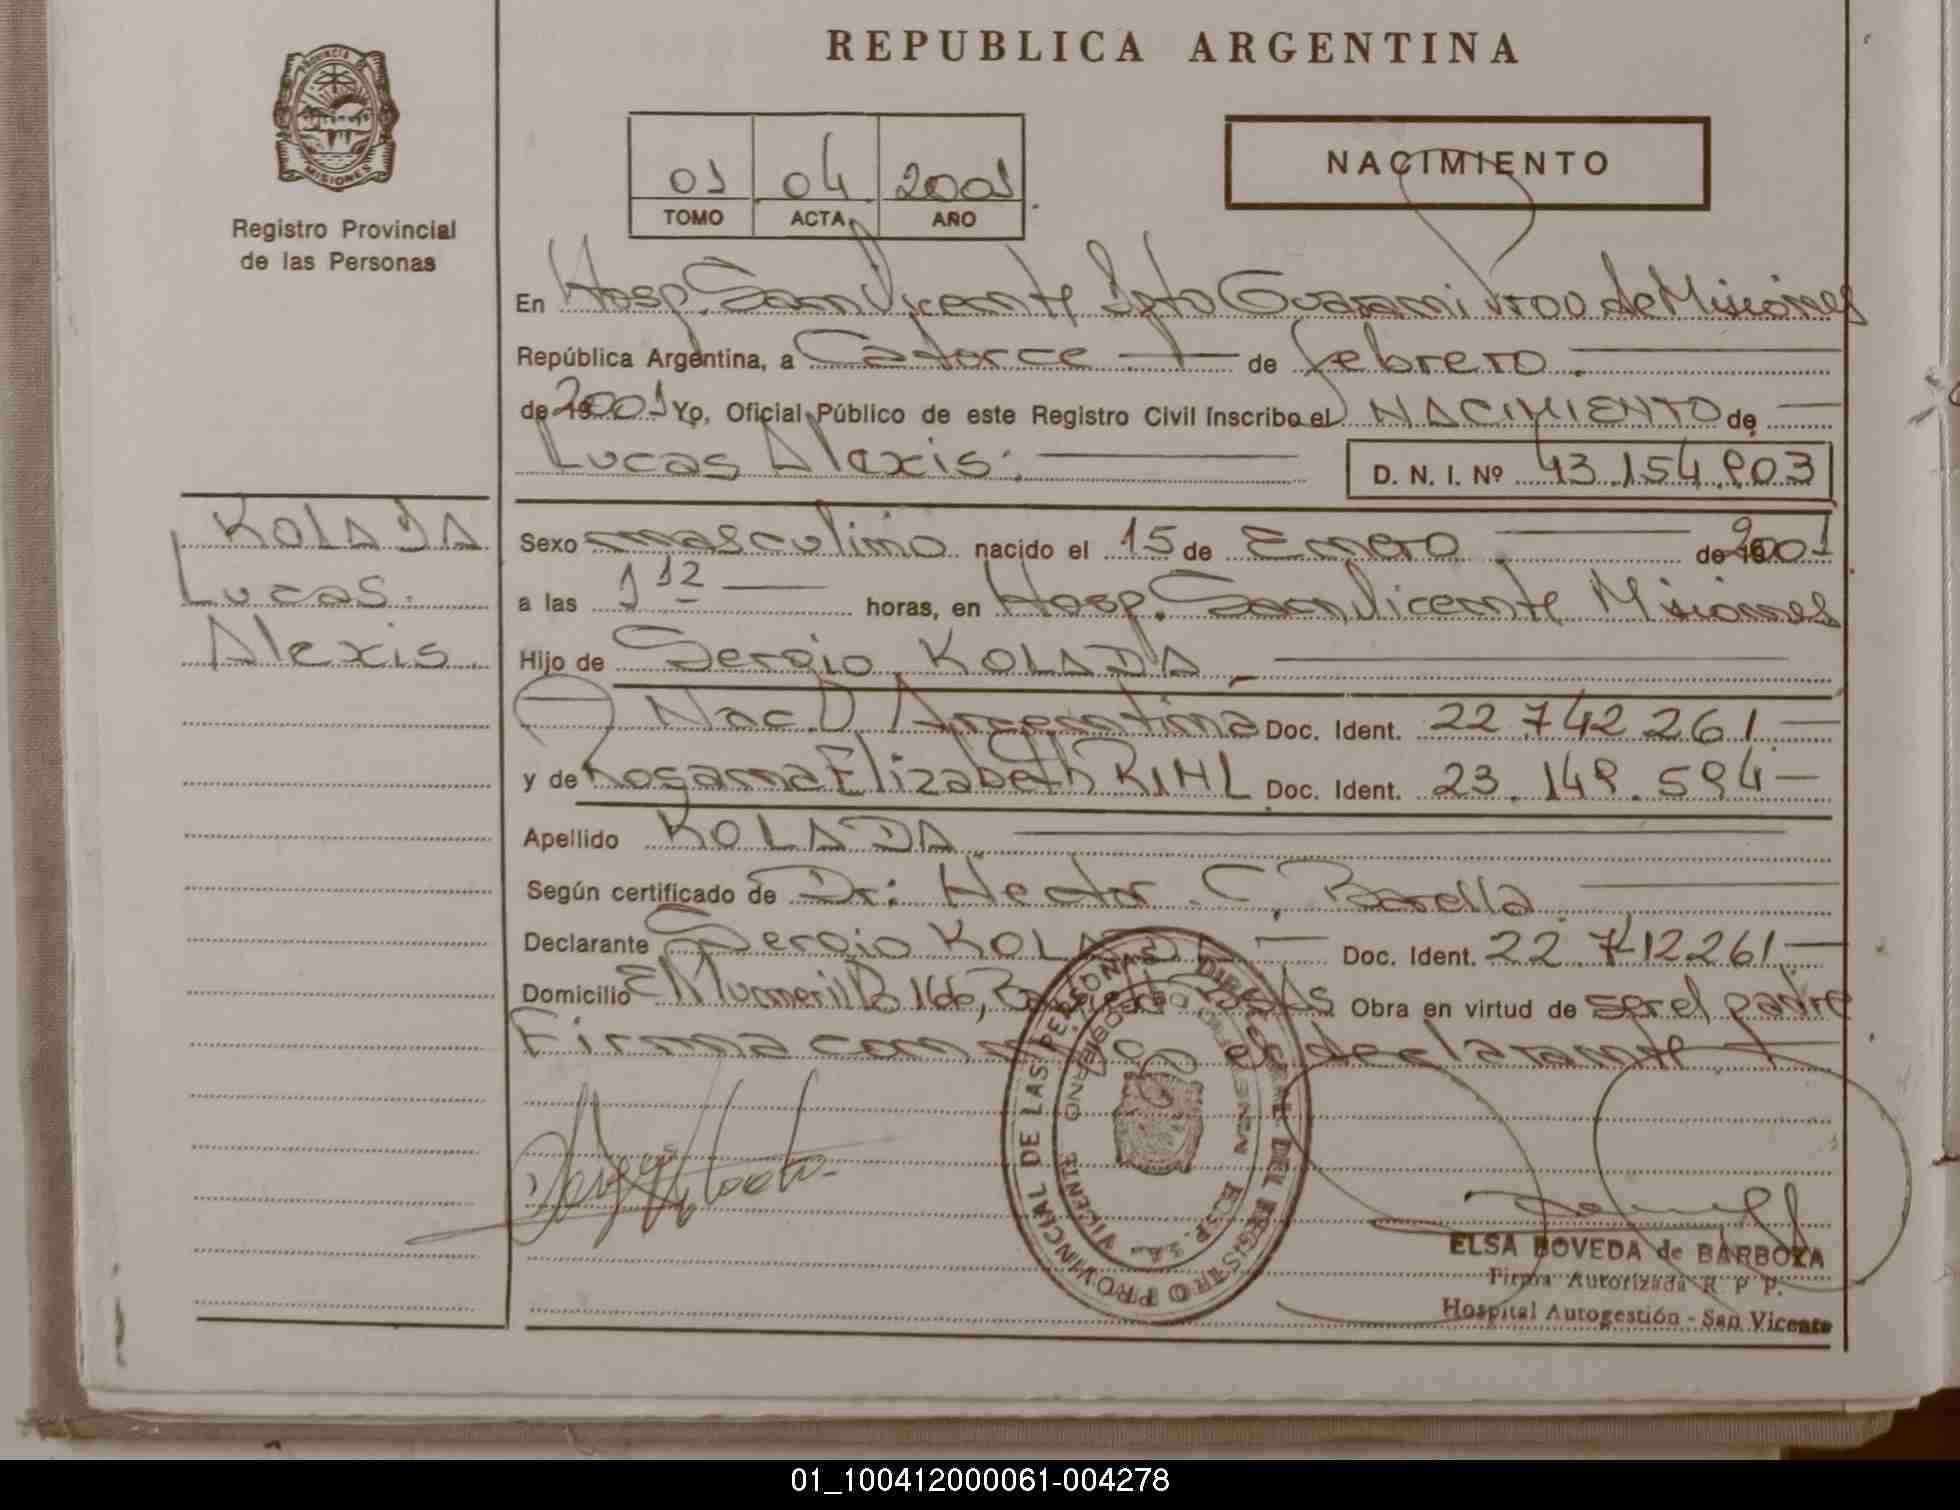 REPUBLICA ARGENTINA
PROVINCIA DE
MISIONES
Registro Provincial
de las Personas
01 04 2001
TOMO ACTA AÑO
NACIMIENTO
En Hosp. San Vicente Dpto Guarani de Misiones
República Argentina, a Catorce de febrero.
de 2001 Yo, Oficial Público de este Registro Civil Inscribo el NACIMIENTO de
Lucas Alexis.
D. N. I. Nº 43.154.903
KOLADA
Lucas.
Alexis.
Sexo masculino nacido el 15 de Enero de 2001
a las 1 12 horas, en Hosp. San Vicente Misiones
Hijo de Sergio KOLADA
Nac. D Argentina Doc. Ident. 22 742 261
y de Rosana Elizabeth RIHL Doc. Ident. 23.149.594
Apellido KOLADA
Según certificado de Dr: Hector C. Barella
Declarante Sergio KOLADA Doc. Ident. 22 742261
Domicilio Obra en virtud de ser el padre
Firma el declarante
DIR DEL REGISTRO PROVINCIAL DE LAS PERSONAS
VICENTE
ELSA BOVEDA de BARBOZA
Firma Autorizada R. P P.
Hospital Autogestión - San Vicente
01_100412000061-004278